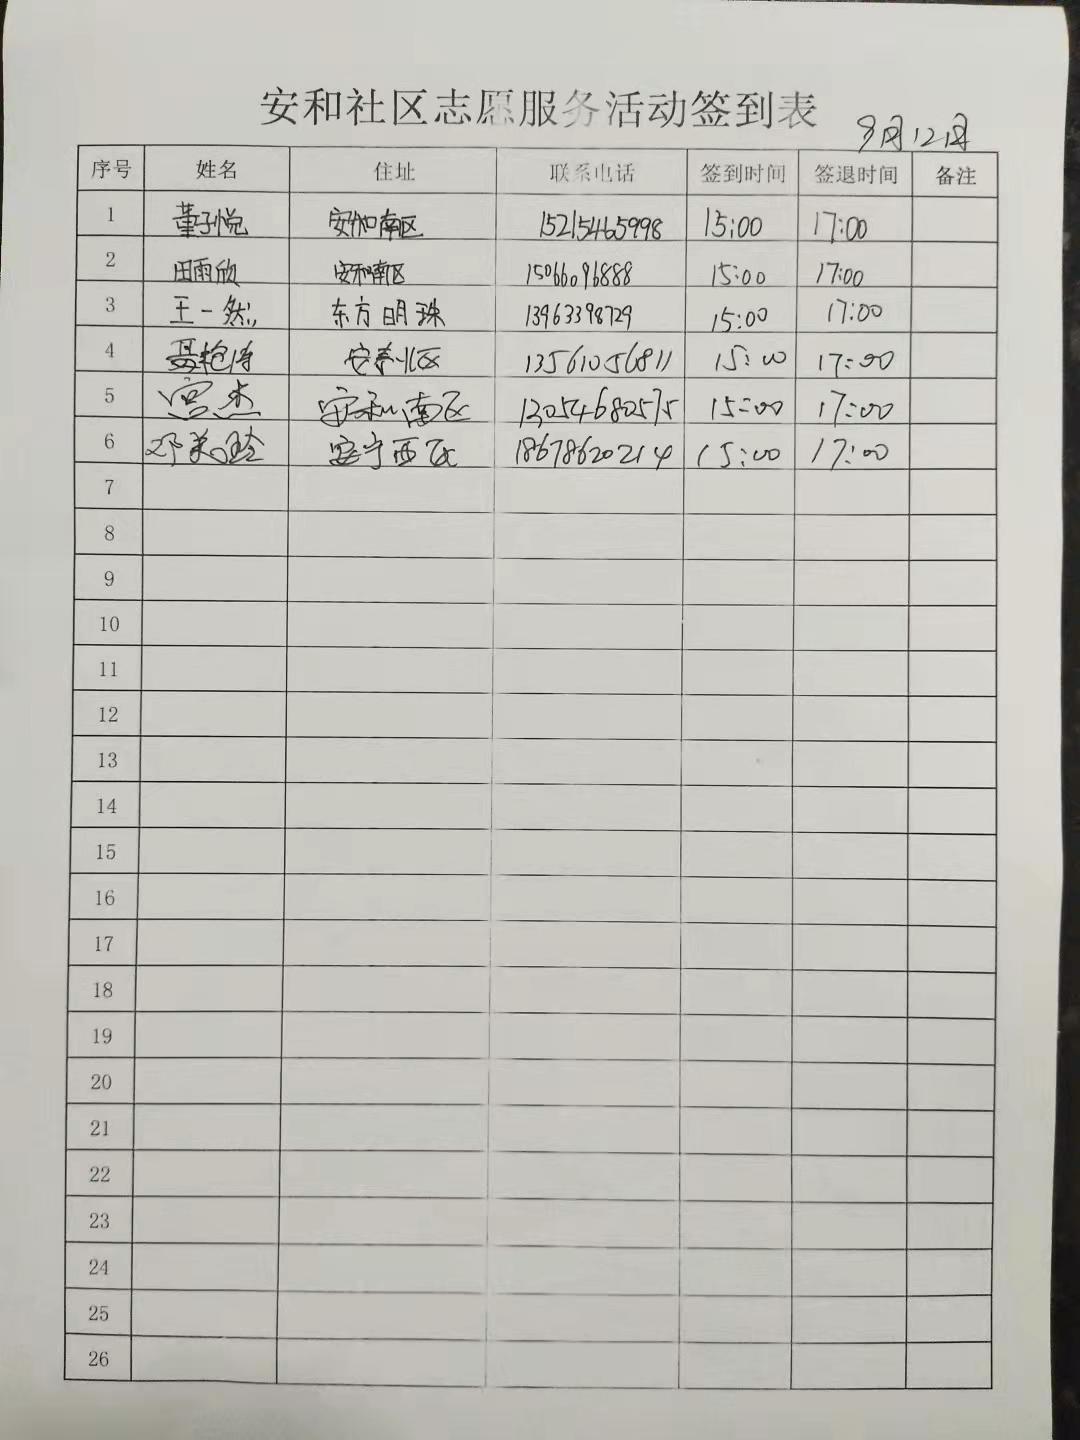 安和社区志愿服务活动签到表
9月12日
序号 姓名 住址 联系电话 签到时间 签退时间 备注
1 董子悦 安和南区 15215465998 15:00 17:00
2 田雨欣 安和南区 15066096888 15:00 17:00
3 王一然 东方明珠 13963398729 15:00 17:00
4 安泰北区 13561056811 15:00 17:00
5 宫杰 安和南区 13054680575 15:00 17:00
6 邓美玲 安宁西区 18678620214 15:00 17:00
7
8
9
10
11
12
13
14
15
16
17
18
19
20
21
22
23
24
25
26